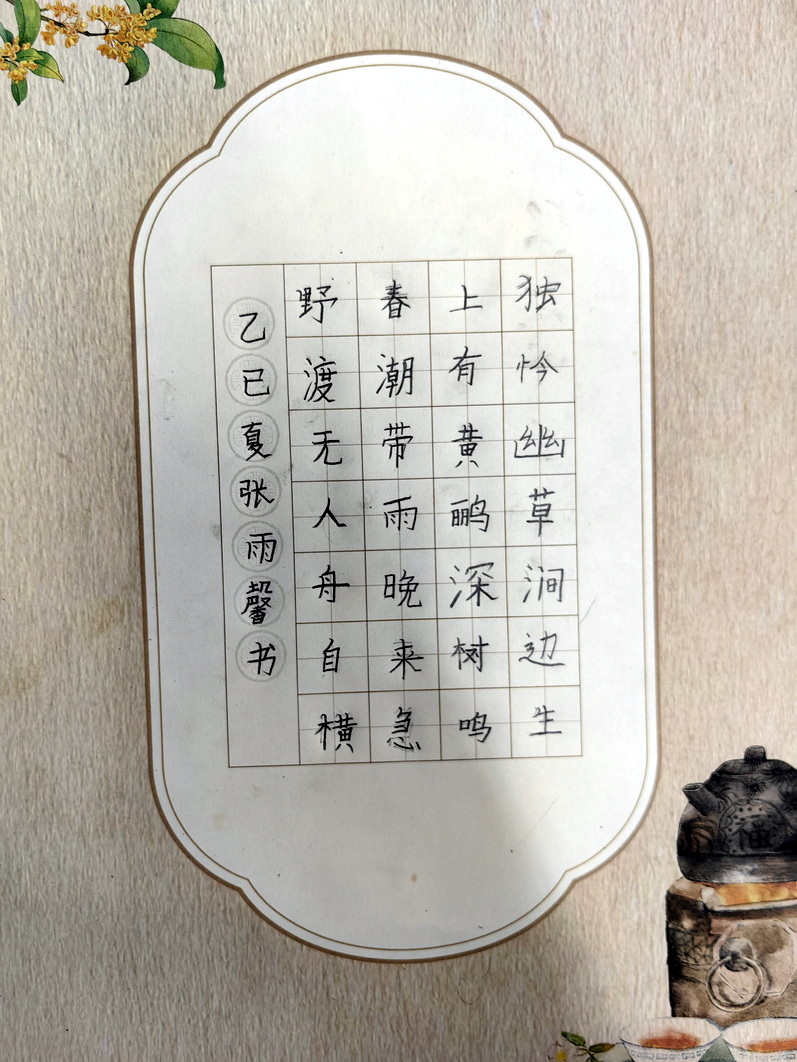 独怜幽草涧边生
上有黄鹂深树鸣
春潮带雨晚来急
野渡无人舟自横
乙巳夏张雨馨书
福